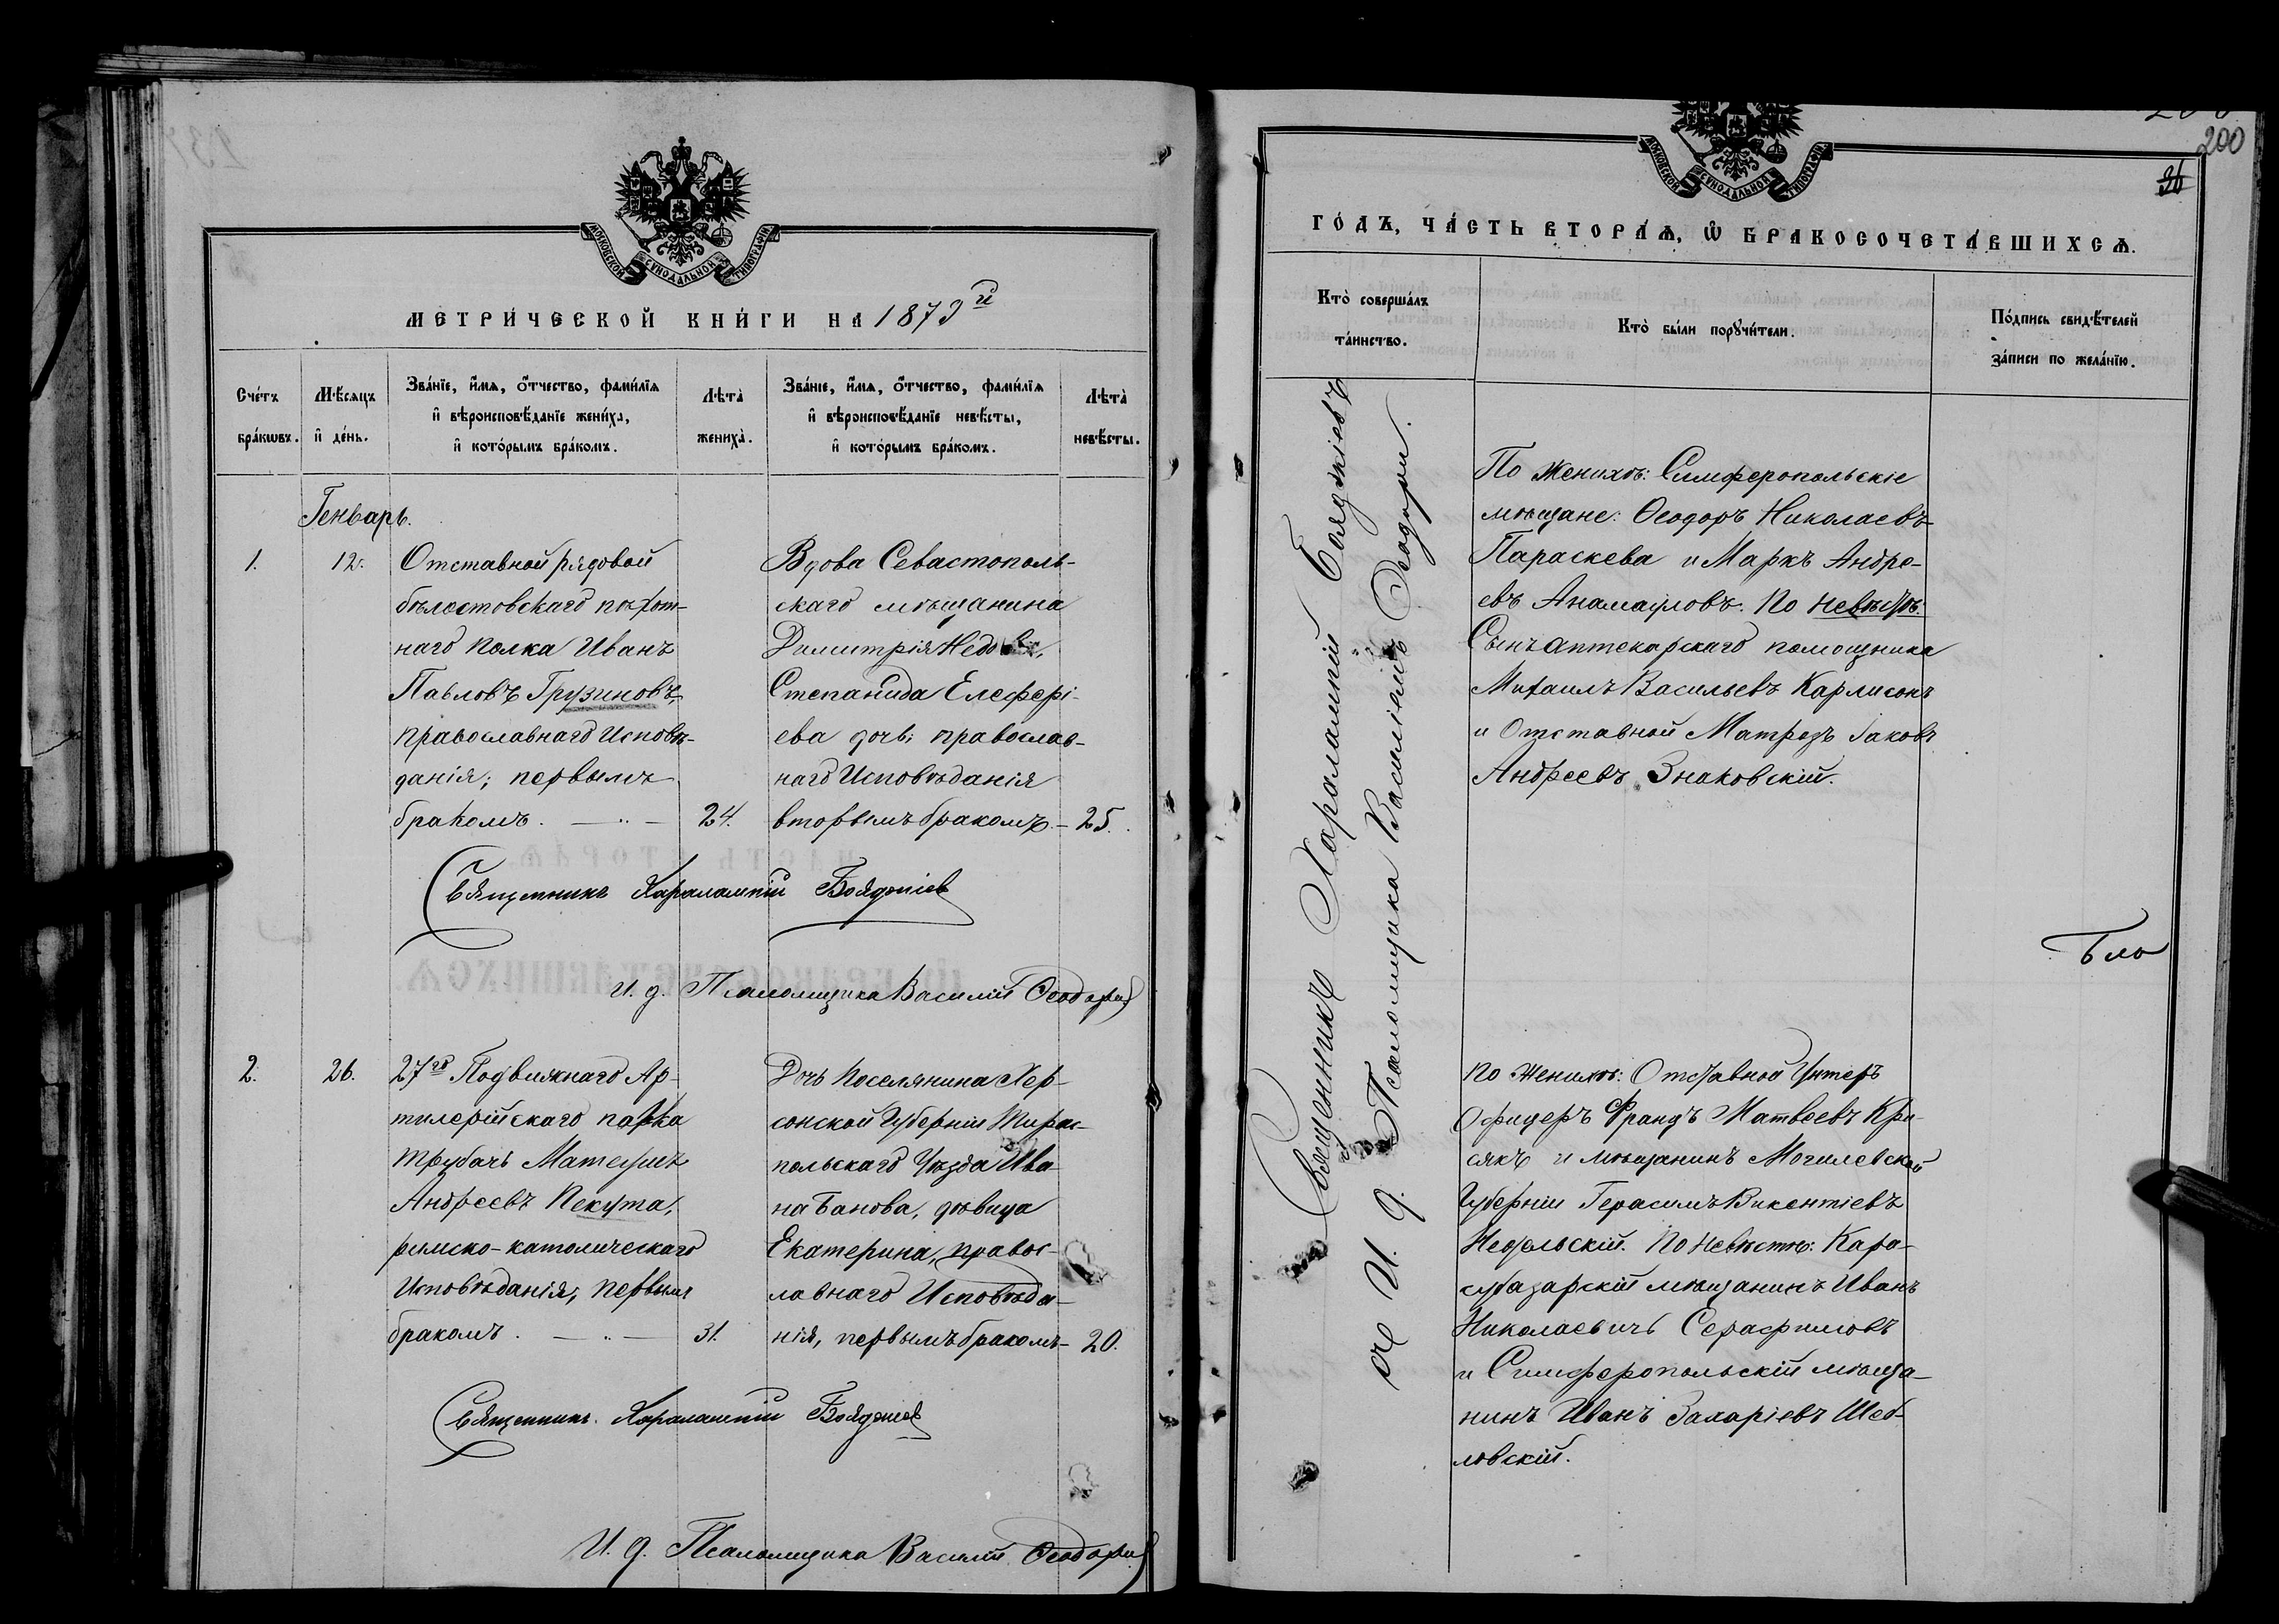 МОСКОВСКОЙ СѴНОДАЛЬНОЙ ТИПОГРАФІИ
МЕТРИ́ЧЕСКОЙ КНИ́ГИ НА 1873й
Сче́тъ бра́кѡвъ.
Мѣ́сяцъ и҆ де́нь.
Зва́нїе, и҆́мѧ, ѻ҆́тчество, фами́лїѧ
и҆ вѣроисповѣ́данїе жениха̀,
и҆ кото́рымъ бра́комъ.
Лѣта̀ жениха̀.
Зва́нїе, и҆́мѧ, ѻ҆́тчество, фами́лїѧ
и҆ вѣроисповѣ́данїе невѣ́сты,
и҆ кото́рымъ бра́комъ.
Лѣта̀ невѣ́сты.
Генварь.
1.
12.
Отставной рядовой
бѣлостовскаго пѣхот-
наго полка Иванъ
Павловъ Грузиновъ,
православнаго Исповѣ-
данія; первымъ
бракомъ. 24.
Вдова Севастополь-
скаго мѣщанина
Димитрія
Степанида Елефері-
ева дочь; православ-
наго Исповѣданія
вторымъ бракомъ. – 25.
Священникъ Харалампій Бояджіев
И. д. Псаломщика Василій Ѳеодори
2.
26.
27го Подвижнаго Ар-
тилерійскаго парка
трубачъ Матеушъ
Андреевъ Пекута,
римско-католическаго
Исповѣданія, первымъ
бракомъ. 31.
Дочь поселянина Хер-
сонской Губерніи Тирас-
польскаго Уѣзда Ива-
на Банова, дѣвица
Екатерина, правос-
лавнаго Исповѣда-
нія, первымъ бракомъ – 20.
Священникъ. Харалампій Бояджіев
И. д. Псаломщика Василій Ѳеодори
200
36
МОСКОВСКОЙ СѴНОДАЛЬНОЙ ТИПОГРАФІИ
ГО́ДЪ, ЧА́СТЬ ВТОРА́Ѧ, Ѡ҆ БРАКОСОЧЕТА́ВШИХСѦ.
Кто̀ соверша́лъ
та́инство.
Кто̀ бы́ли порꙋчи́тели.
По́дпись свидѣ́телей
за́писи по жела́нїю.
Священникъ Харалампій Бояджіевъ
съ И. д. Псаломщика Василіемъ Ѳеодори.
По Женихѣ: Симферопольскіе
мѣщане: Ѳеодоръ Николаевъ
Параскева и Маркъ Андре-
евъ По Невѣстѣ:
Сынъ аптекарскаго помощника
Михаилъ Васильевъ Карлисонъ
и Отставной Матрозъ Іаковъ
Андреевъ Знаковскій.
По Женихѣ: Отставной Унтеръ
Офицеръ Францъ Матвеевъ Кри-
сякъ и мѣщанинъ Могилевской
Губерніи Герасимъ Викентіевъ
По Невѣстѣ: Кара-
субазарскій мѣщанинъ Иванъ
Николаевичъ Серафимовъ
и Симферопольскій мѣща-
нинъ Иванъ Захаріевъ Шеб-
ловскій.